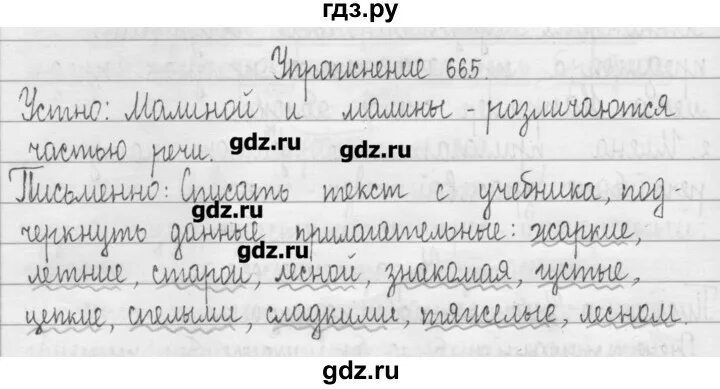 гдз.ру
Упражнение 665.
Устно: Малиной и малины различаются
частью речи.
gdz.ru
gdz.ru
Письменно: Списать текст с учебника, под-
gdz.ru
черкнуть данные прилагательные: жаркие,
летние, старой, лесной, знакомая, густые,
gdz.ru
gdz.ru
цепкие, спелыми, сладкими, тяжелые, лесном.
gdz.ru